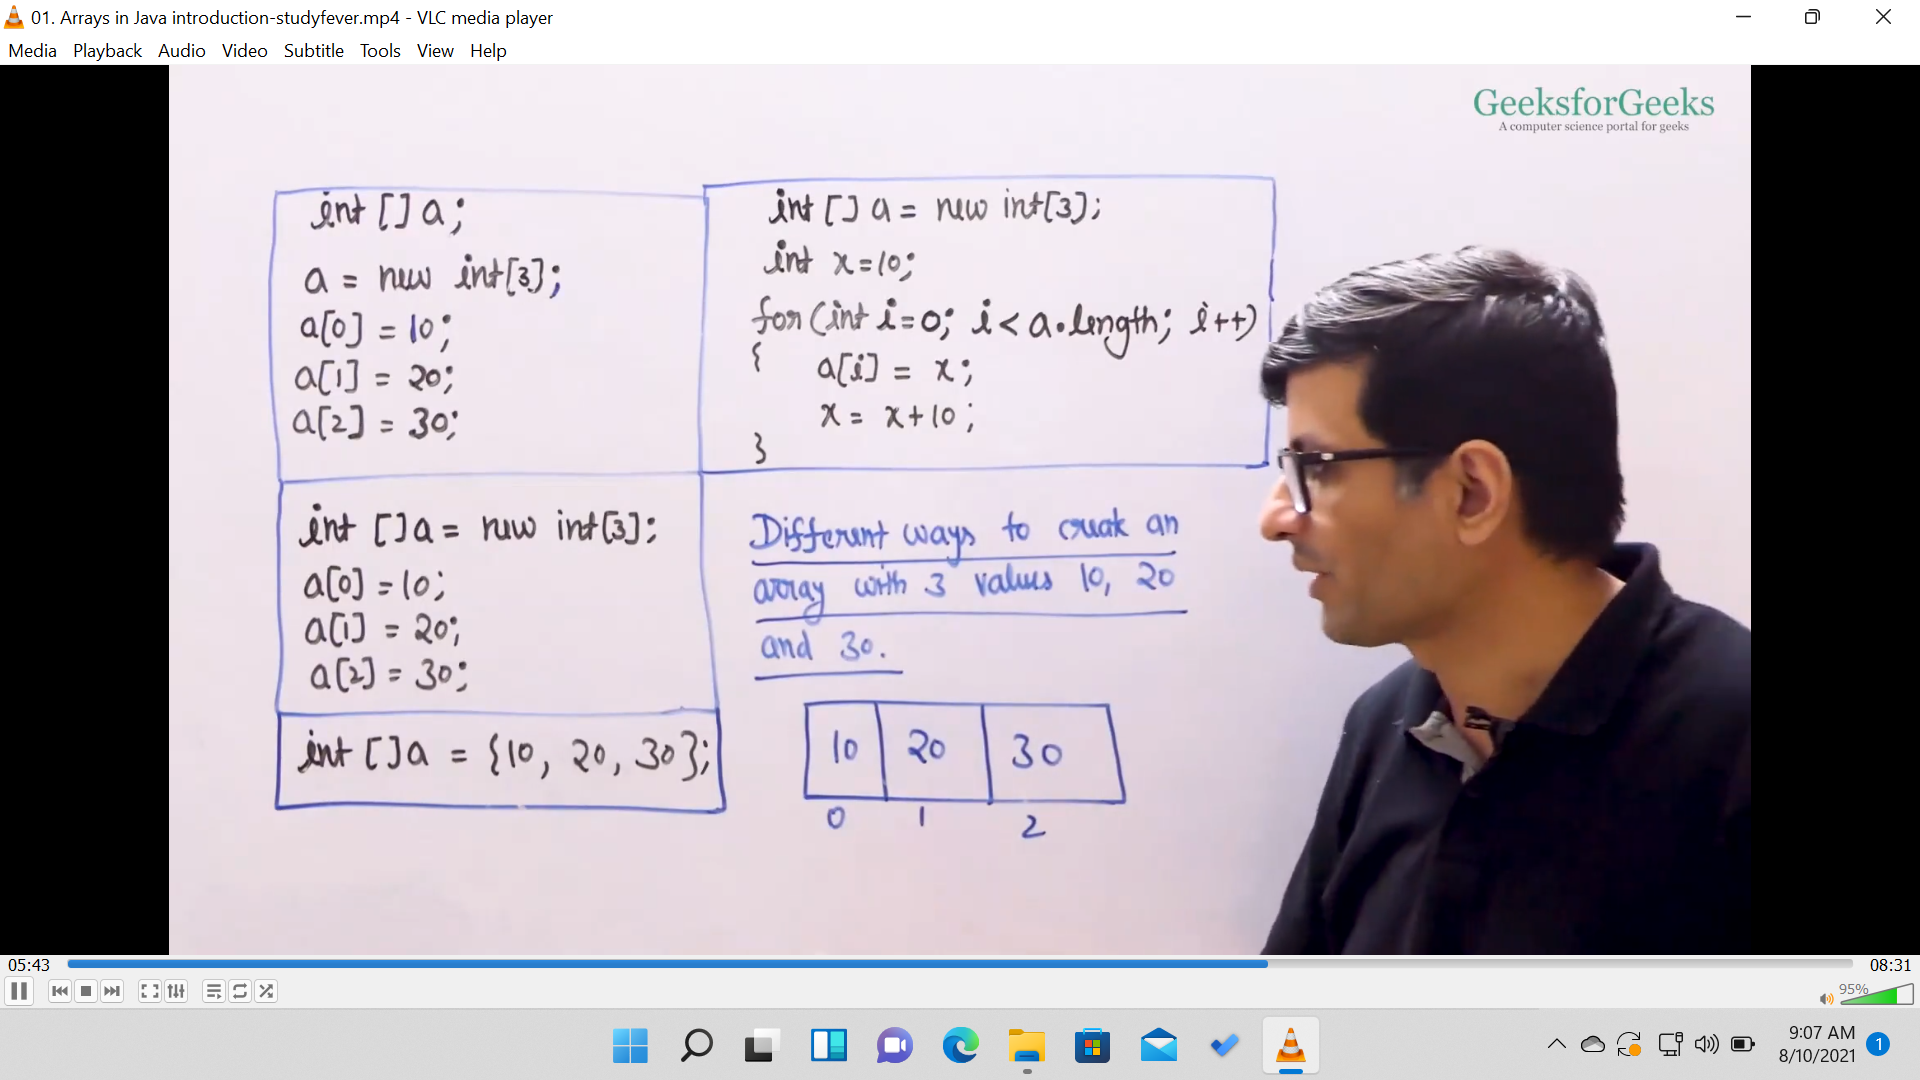 01. Arrays in Java introduction-studyfever.mp4 - VLC media player
Media Playback Audio Video Subtitle Tools View Help
GeeksforGeeks
A computer science portal for geeks
int [] a;
a = new int[3];
a[0] = 10;
a[1] = 20;
a[2] = 30;
int [] a = new int[3];
int x=10;
for(int i=0; i< a.length; i++)
{
a[i] = x;
x = x+10;
}
int [] a = new int[3];
a[0] =10;
a[1] = 20;
a[2] = 30;
int [] a = {10, 20, 30};
Different ways to create an
array with 3 values 10, 20
and 30.
10 20 30
0 1 2
05:43
08:31
95%
9:07 AM
8/10/2021
1